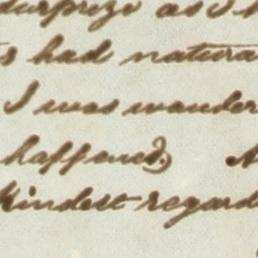 surprize as I
had natura
I was wander
happened)
kindest regard